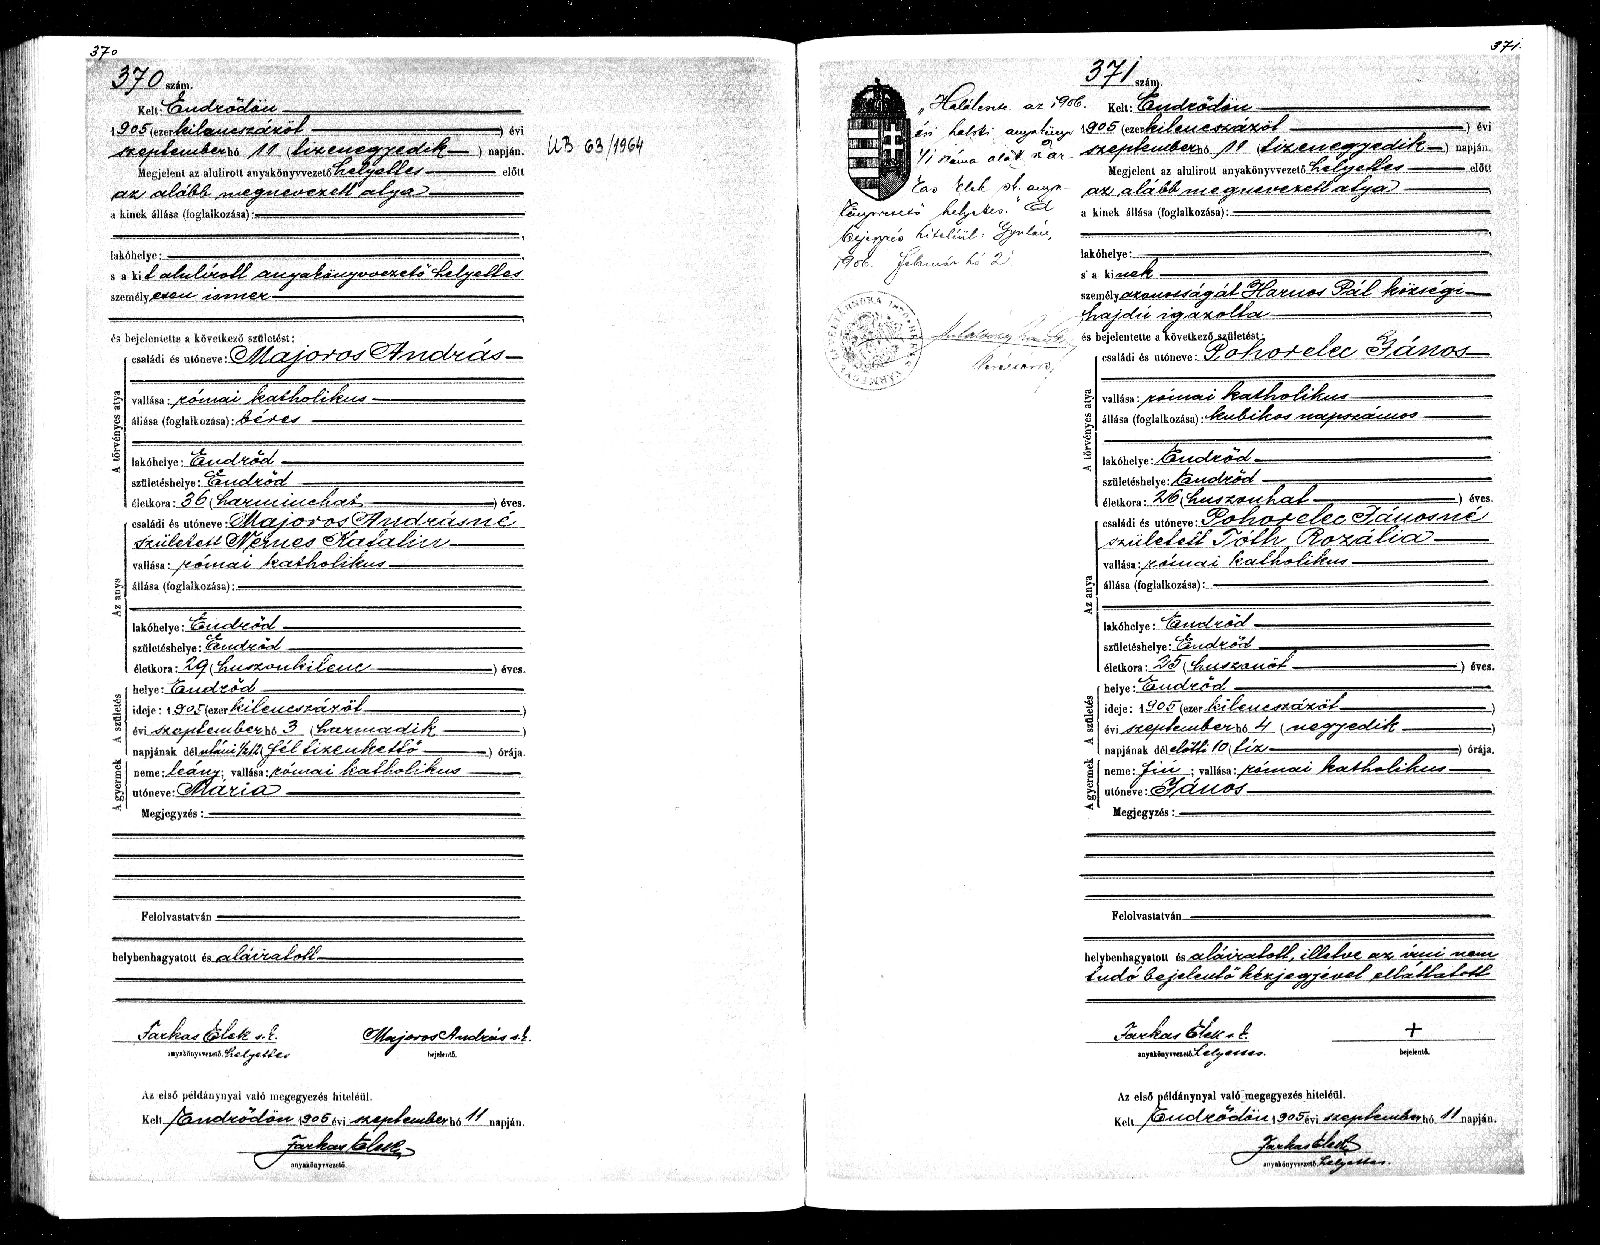 370
370 szám.
Kelt: Endrődön
1905 (ezerkilencszázöt) évi
szeptember hó 11 (tizenegyedik) napján.
Megjelent az alulirott anyakönyvvezető helyettes előtt
az alább megnevezett atya
a kinek állása (foglalkozása):
lakóhelye:
s a kit alulírott anyakönyvvezető helyettes
személyesen ismer
és bejelentette a következő születést:
A törvényes atya
családi és utóneve: Majoros András
vallása: római katholikus
állása (foglalkozása): béres
lakóhelye: Endrőd
születéshelye: Endrőd
életkora: 36 (harminchat) éves.
Az anya
családi és utóneve: Majoros Andrásné
született Nemes Katalin
vallása: római katholikus
állása (foglalkozása):
lakóhelye: Endrőd
születéshelye: Endrőd
életkora: 29 (huszonkilenc) éves.
A születés
helye: Endrőd
ideje: 1905 (ezerkilencszázöt)
évi szeptember hó 3 (harmadik)
napjának délutáni 1/2 12 (fél tizenkettő) órája.
A gyermek
neme: leány; vallása: római katholikus
utóneve: Mária
Megjegyzés:
Felolvastatván
helybenhagyatott és aláiratott
Farkas Elek s.k. Majoros András s.k.
anyakönyvvezető helyettes bejelentő.
Az első példánynyal való megegyezés hiteléül.
Kelt Endrődön 1905 évi szeptember hó 11 napján.
Farkas Elek
anyakönyvvezető.
UB 63/1964
371.
371 szám.
"Halálesete az 1906.
évi halotti anyakönyv
alatt
helyettes."
bejegyzés hiteléül: Gyulán,
1906. február hó 2
Kelt: Endrődön
1905 (ezerkilencszázöt) évi
szeptember hó 11 (tizenegyedik) napján.
Megjelent az alulirott anyakönyvvezető helyettes előtt
az alább megnevezett atya
a kinek állása (foglalkozása):
lakóhelye:
s a kinek
személyazonosságát Harnos Pál községi
hajdú igazolta
és bejelentette a következő születést:
A törvényes atya
családi és utóneve: Pohorelec János
vallása: római katholikus
állása (foglalkozása): kubikos napszámos
lakóhelye: Endrőd
születéshelye: Endrőd
életkora: 26 (huszonhat) éves.
Az anya
családi és utóneve: Pohorelec Jánosné
született Tóth Rozália
vallása: római katholikus
állása (foglalkozása):
lakóhelye: Endrőd
születéshelye: Endrőd
életkora: 25 (huszonöt) éves.
A születés
helye: Endrőd
ideje: 1905 (ezerkilencszázöt)
évi szeptember hó 4 (negyedik)
napjának délelőtti 10 (tíz) órája.
A gyermek
neme: fiú; vallása: római katholikus
utóneve: János
Megjegyzés:
Felolvastatván
helybenhagyatott és aláiratott, illetve az írni nem
tudó bejelentő kézjegyével elláttatott
Farkas Elek s.k. +
anyakönyvvezető helyettes. bejelentő.
Az első példánynyal való megegyezés hiteléül.
Kelt Endrődön 1905 évi szeptember hó 11 napján.
Farkas Elek
anyakönyvvezető helyettes.